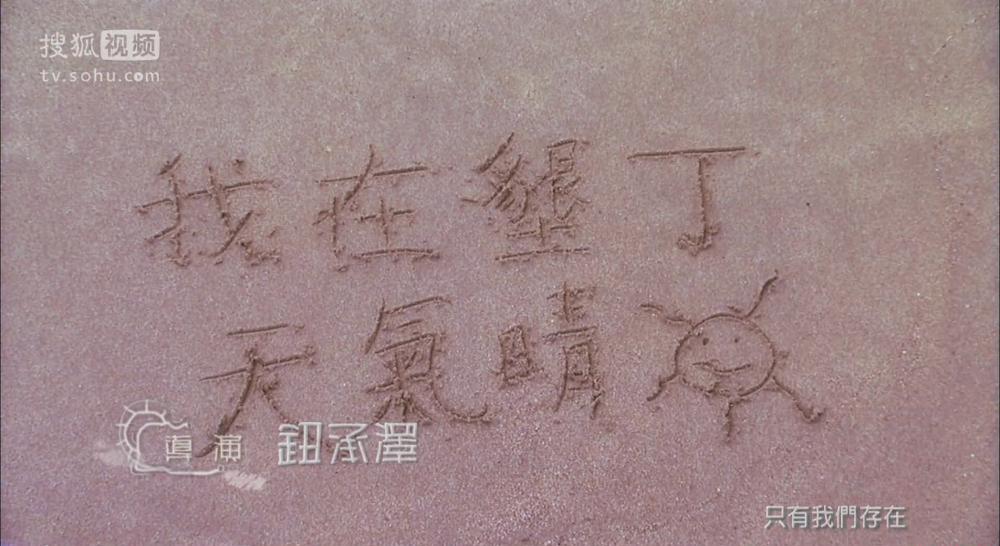 搜狐视频
tv.sohu.com
我在墾丁
天氣晴
導演 鈕承澤
只有我們存在